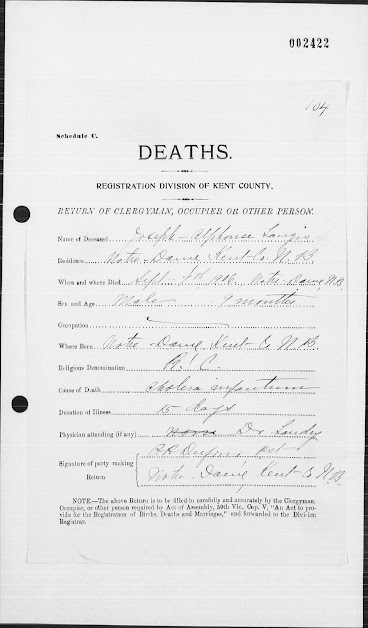 002422
104
Schedule C.
DEATHS.
REGISTRATION DIVISION OF KENT COUNTY.
RETURN OF CLERGYMAN, OCCUPIER OR OTHER PERSON.
Name of Deceased Joseph Alphonse Langis
Residence Notre-Dame Kent Co N. B.
When and where Died Sept 1906 Notre-Dame N.B.
Sex and Age Male 9 months
Occupation
Where Born Notre-Dame Kent Co N. B.
Religious Denomination R. C.
Cause of Death Cholera infantum
Duration of Illness 15 days
Physician attending (if any) Dr Landry
Signature of party making
Return Notre Dame Kent Co N. B.
NOTE.—The above Return is to be filled in carefully and accurately by the Clergyman,
Occupier, or other person required by Act of Assembly, 50th Vic., Cap. V, "An Act to pro-
vide for the Registration of Births, Deaths and Marriages," and forwarded to the Division
Registrar.